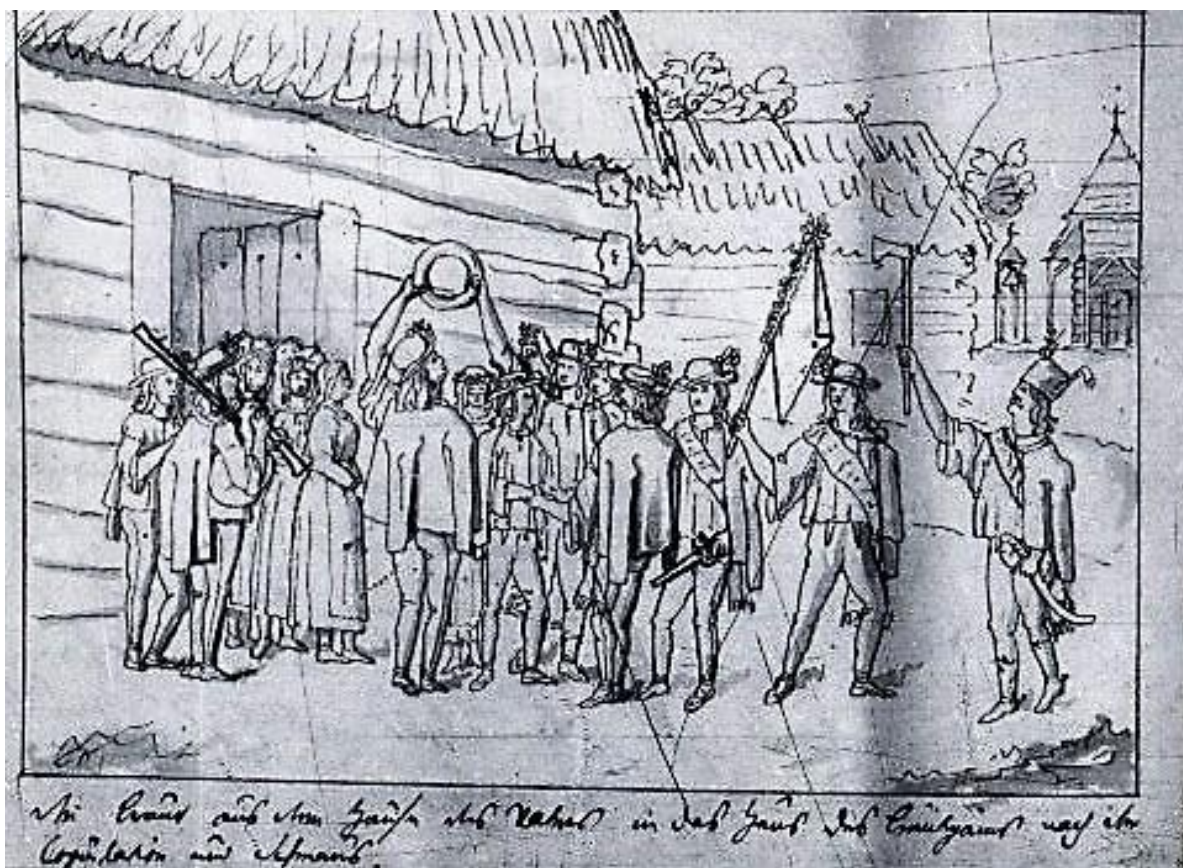 die Braut aus dem Hause des Vaters in das Haus des Bräutgams nach der
Copulation und Schmaus.